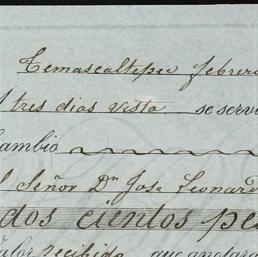 Temascaltepec febrero
tres dias vista se serv
Cambio
Señor Dn Jose Leonard
dos cientos pe
Valor recibido que anotará